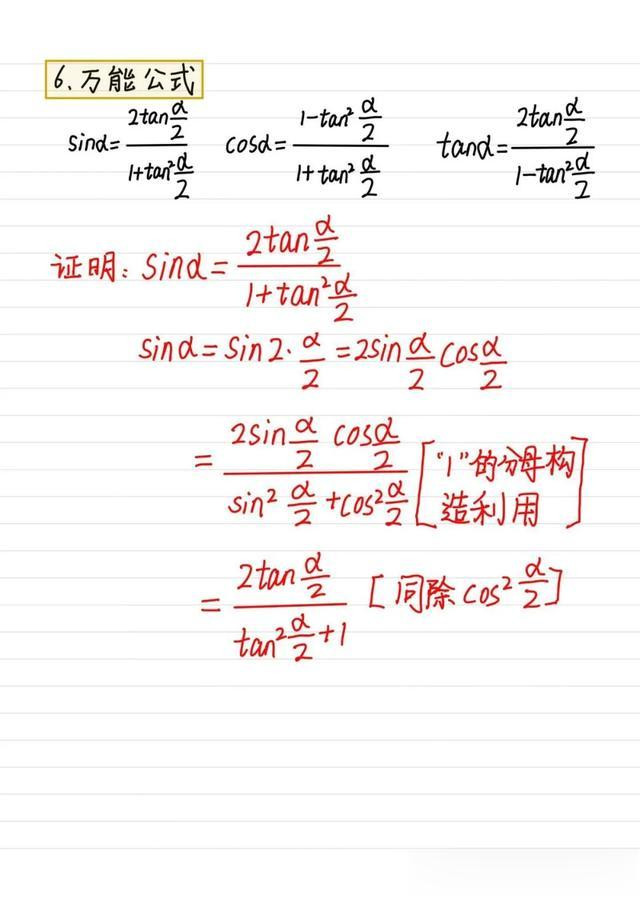 6.万能公式
sinα=2tan(α/2)/(1+tan²(α/2)) cosα=(1-tan²(α/2))/(1+tan²(α/2)) tanα=2tan(α/2)/(1-tan²(α/2))
证明: sinα=2tan(α/2)/(1+tan²(α/2))
sinα=sin2·α/2=2sin(α/2)cos(α/2)
=2sin(α/2)cos(α/2)/(sin²(α/2)+cos²(α/2)) ["1"的分母构
造利用]
=2tan(α/2)/(tan²(α/2)+1) [同除cos²(α/2)]